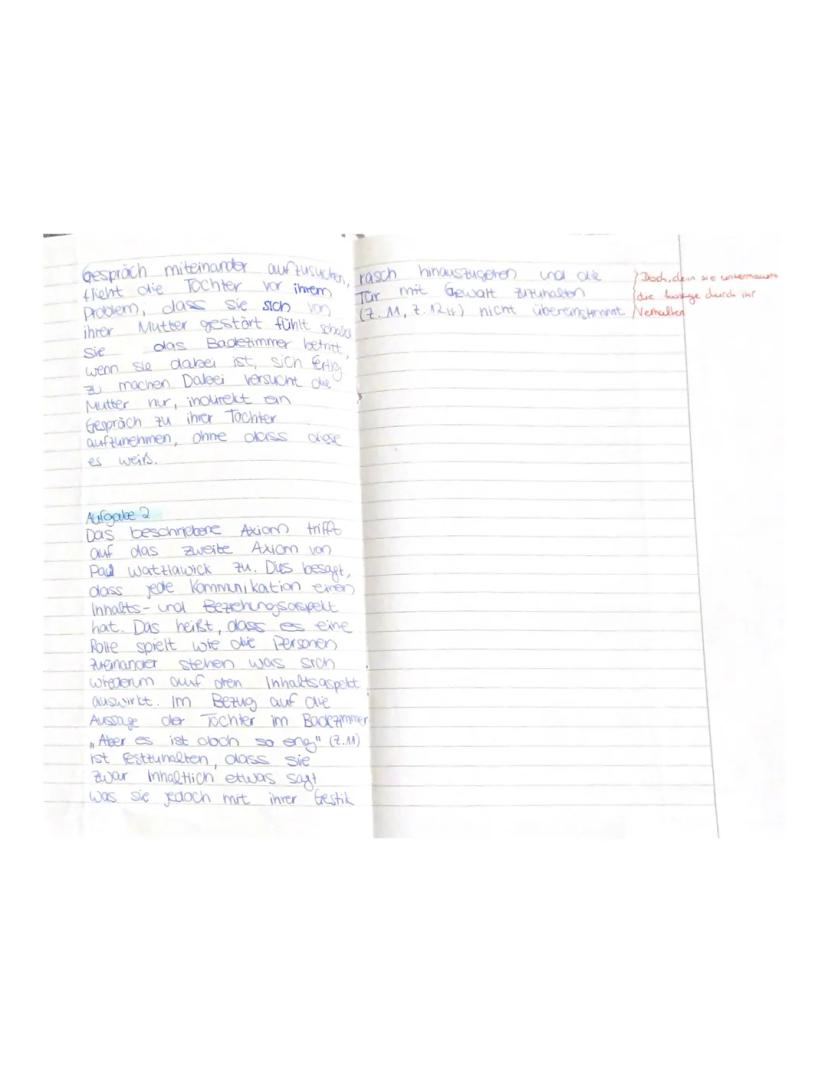 Gespräch miteinander aufzusuchen,
flieht die Tochter vor ihrem
Problem, dass sie sich von
ihrer Mutter gestört fühlt sobald
sie das Badezimmer betritt,
wenn sie dabei ist, sich fertig
zu machen. Dabei versucht die
Mutter nur, indirekt ein
Gespräch zu ihrer Tochter
aufzunehmen, ohne dass diese
es weiß.
Aufgabe 2
Das beschriebene Axiom trifft
auf das zweite Axiom von
Paul Watzlawick zu. Dies besagt,
dass jede Kommunikation einen
Inhalts- und Beziehungsaspekt
hat. Das heißt, dass es eine
Rolle spielt wie die Personen
zueinander stehen was sich
wiederum auf den Inhaltsaspekt
auswirkt. Im Bezug auf die
Aussage der Tochter im Badezimmer
„Aber es ist doch so eng" (Z.11)
ist festzuhalten, dass sie
zwar inhaltlich etwas sagt
was sie jedoch mit ihrer Gestik
rasch hinauszugehen und die
Tür mit Gewalt zuzuhalten
(Z. 11, Z. 12f) nicht übereinstimmt
Doch, denn sie untermauert
die Aussage durch ihr
Verhalten